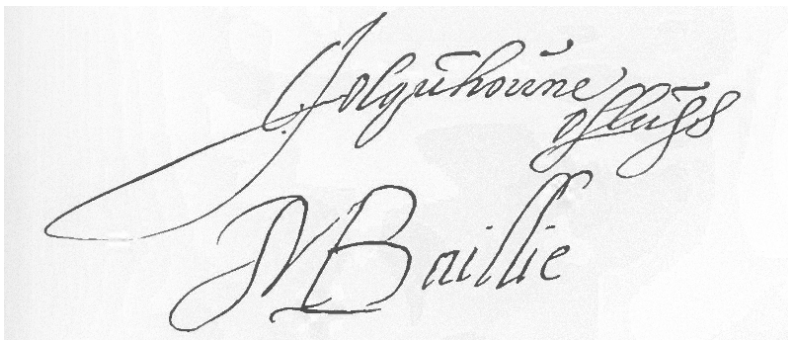 Jolquhoune
of luss
M Baillie